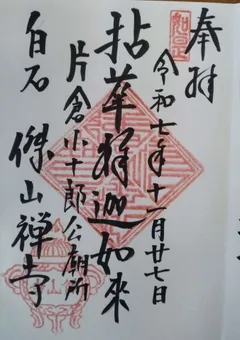 奉拝
令和七年十一月廿七日
如是
拈華釋迦如來
片倉小十郎公廟所
白石 傑山禅寺